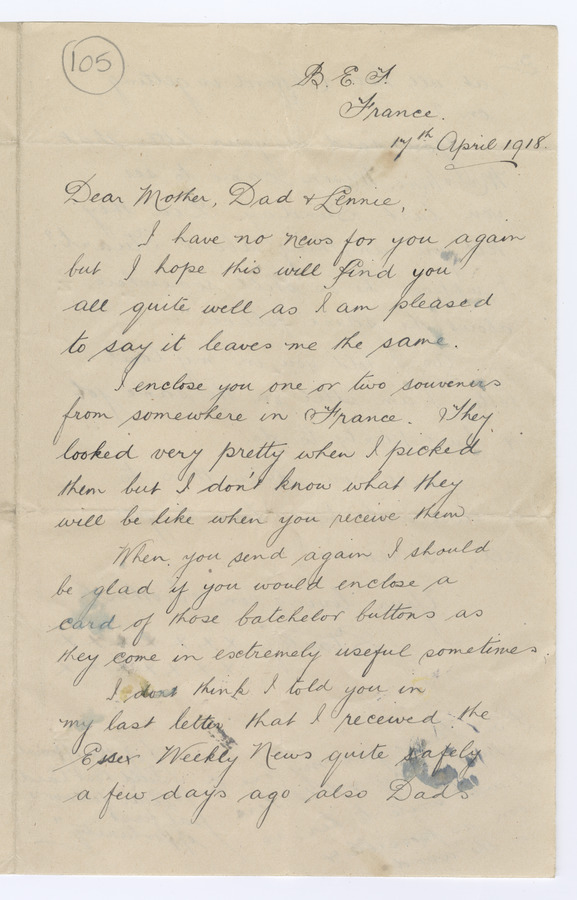 105
B. E. F.
France.
17th April 1918.
Dear Mother, Dad & Lennie,
I have no news for you again
but I hope this will find you
all quite well as I am pleased
to say it leaves me the same.
I enclose you one or two souvenirs
from somewhere in France. They
looked very pretty when I picked
them but I don't know what they
will be like when you receive them.
When you send again I should
be glad if you would enclose a
card of those batchelor buttons as
they come in extremely useful sometimes.
I dont think I told you in
my last letter that I received the
Essex Weekly News quite safely
a few days ago also Dads